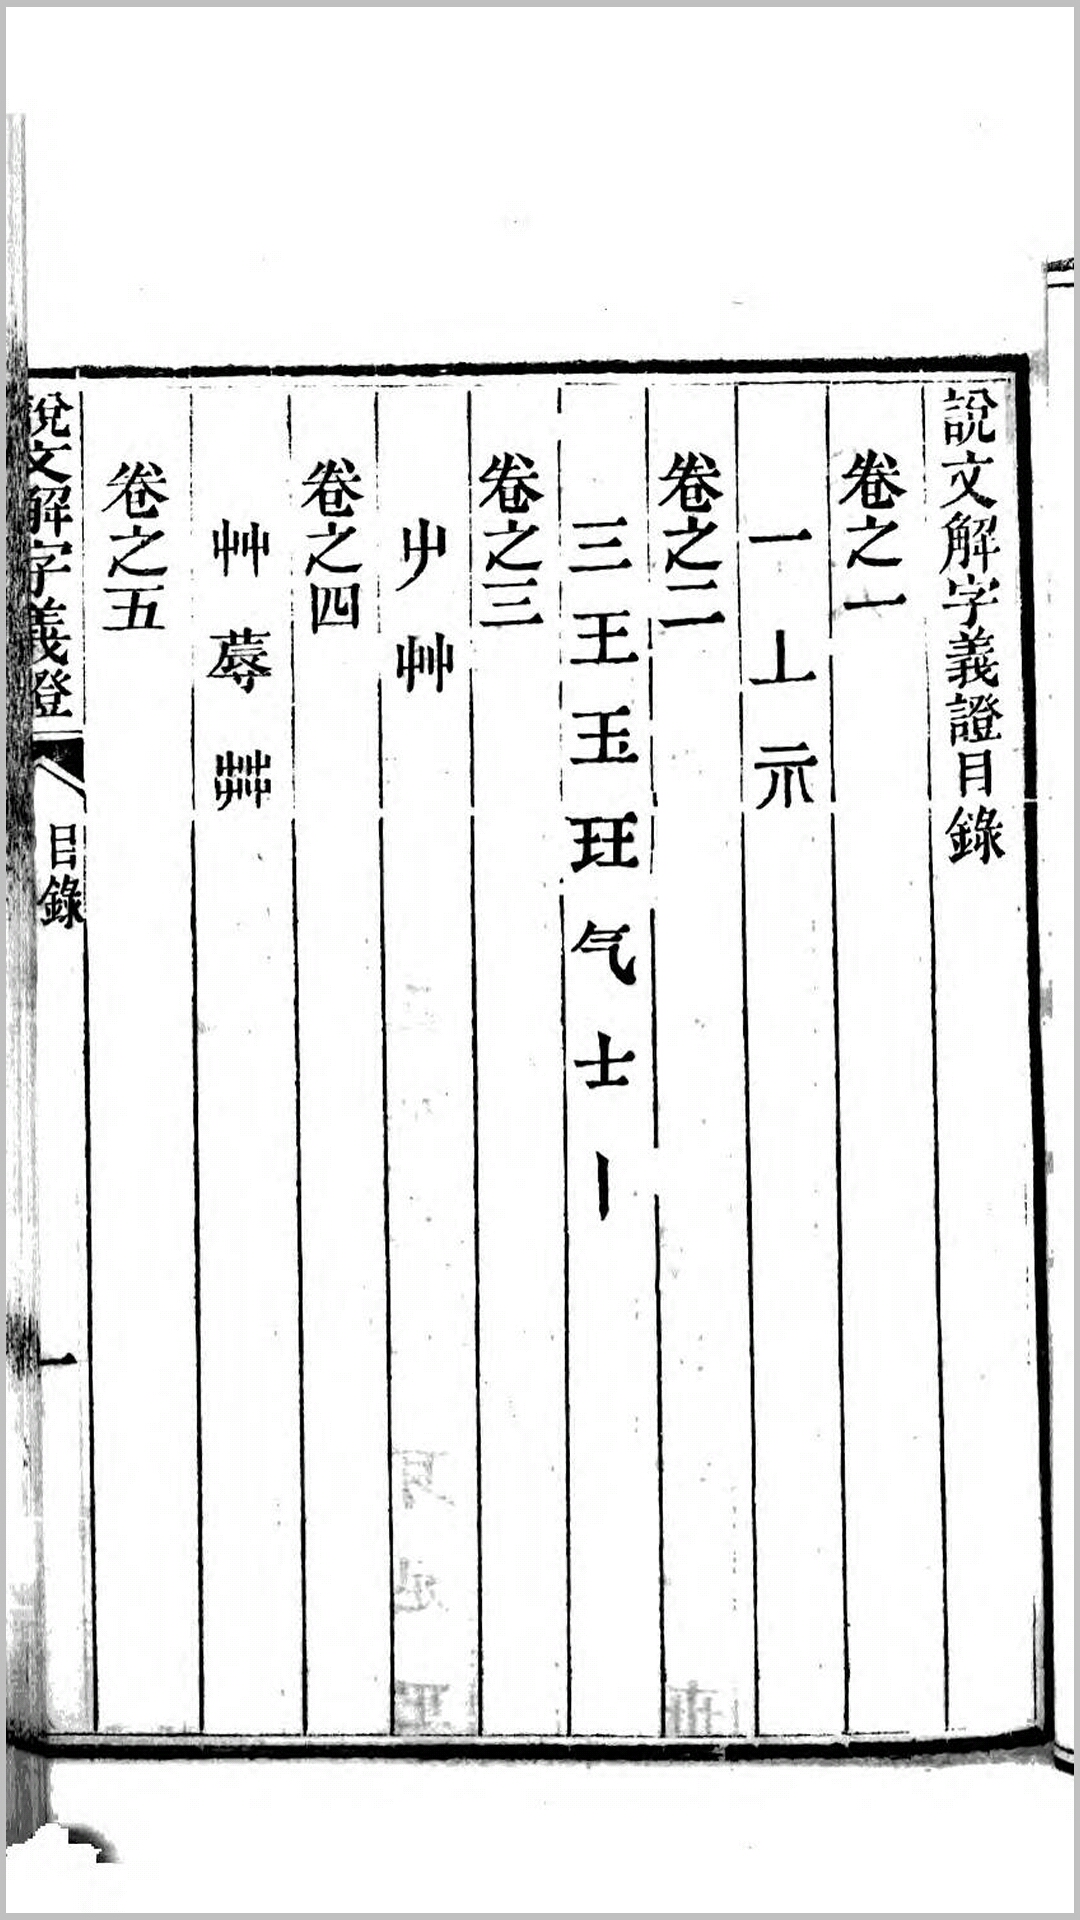 說文解字義證目錄
卷之一
一 丄 示
卷之二
三 王 玉 玨 气 士 丨
卷之三
屮 艸
卷之四
艸 蓐 茻
卷之五
說文解字義證 目錄 一